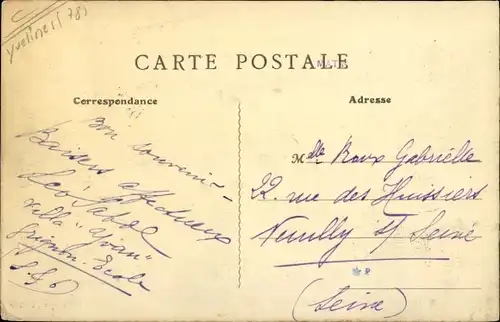 Yvelines (78)
CARTE POSTALE
Correspondance
Adresse
Bon souvenir -
Baisers affectueux
Villa "Yvan"
Grignon-Ecole
(S.&O)
Mlle Roux Gabrielle
22 rue des Huissiers
Neuilly s/ Seine
(Seine)